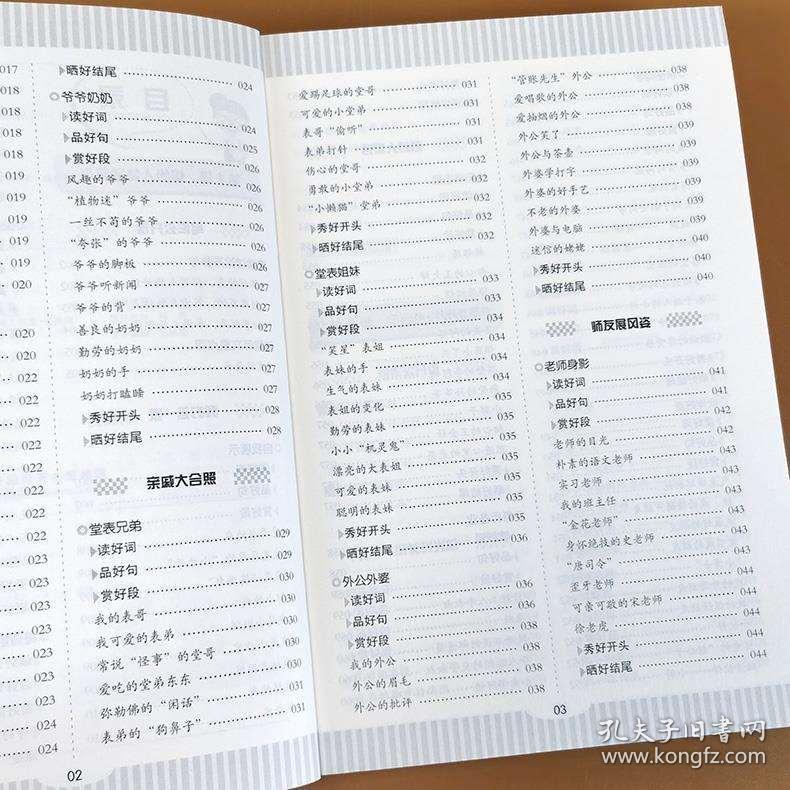 017
018
018
018
018
019
019
019
019
020
020
020
022
022
022
022
022
022
022
023
023
023
023
023
023
024
024
晒好结尾 024
爷爷奶奶
读好词 024
品好句 025
赏好段 026
风趣的爷爷 026
“植物迷”爷爷 026
一丝不苟的爷爷 026
“夸张”的爷爷 026
爷爷的脚板 026
爷爷听新闻 027
爷爷的背 027
善良的奶奶 027
勤劳的奶奶 027
奶奶的手 027
奶奶打瞌睡 027
秀好开头 028
晒好结尾 028
亲戚大合照
堂表兄弟
读好词 029
品好句 029
赏好段 030
我的表哥 030
我可爱的表弟 030
常说“怪事”的堂哥 030
爱吃的堂弟东东 030
弥勒佛的“闲话” 031
表弟的“狗鼻子” 031
02
爱踢足球的堂哥 031
可爱的小堂弟 031
表哥“偷听” 031
表弟打针 031
伤心的堂哥 032
勇敢的小堂弟 032
“小懒猫”堂弟 032
秀好开头 032
晒好结尾 032
堂表姐妹
读好词 033
品好句 033
赏好段 034
“笑星”表姐 034
表妹的手 034
生气的表妹 034
表姐的变化 034
勤劳的表妹 034
小小“机灵鬼” 035
漂亮的大表姐 035
可爱的表妹 035
聪明的表妹 035
秀好开头 035
晒好结尾 036
外公外婆
读好词 036
品好句 036
赏好段 038
我的外公 038
外公的眉毛 038
外公的批评 038
“管账先生”外公 038
爱唱歌的外公 038
爱抽烟的外公 038
外公笑了 039
外公与茶壶 039
外婆学打字 039
外婆的好手艺 039
不老的外婆 039
外婆与电脑 039
迷信的姥姥 040
秀好开头 040
晒好结尾 040
师友展风姿
老师身影
读好词 041
品好句 042
赏好段 042
老师的目光 042
朴素的语文老师 042
实习老师 043
我的班主任 043
“金花老师” 043
身怀绝技的史老师 043
“唐司令” 043
歪牙老师 043
可亲可敬的宋老师 044
徐老虎 044
秀好开头 044
晒好结尾 044
03
孔夫子旧书网
www.kongfz.com